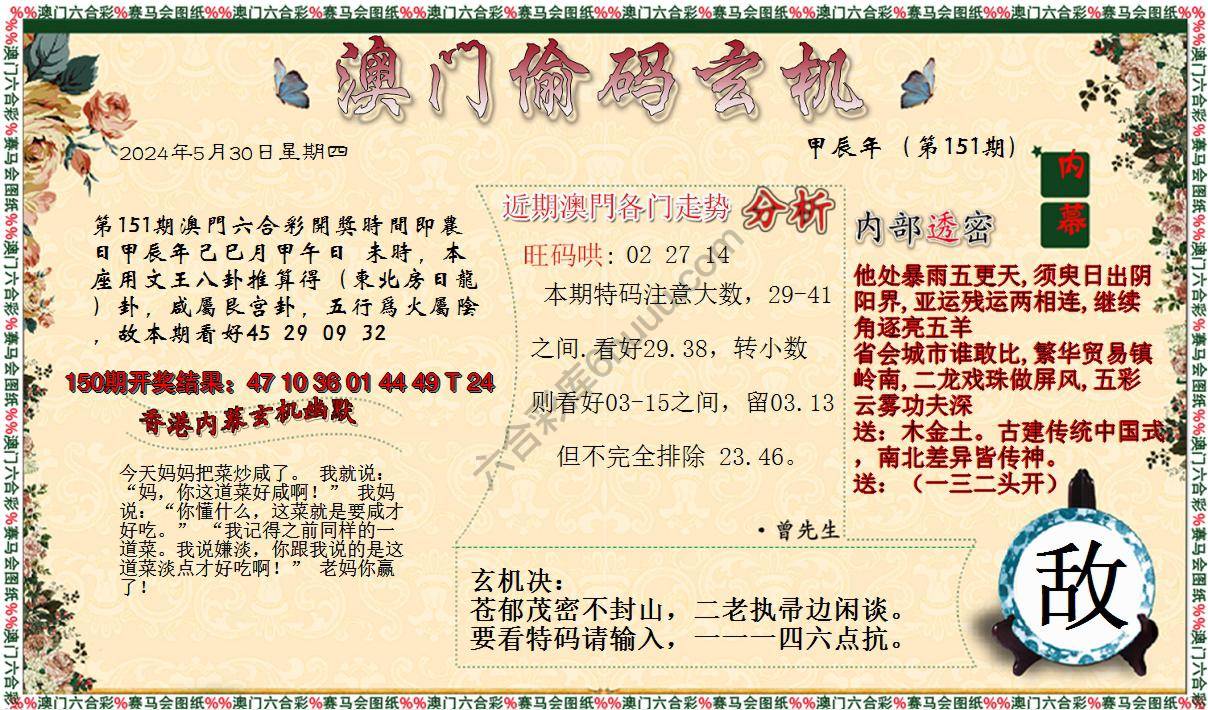 %%澳门六合彩%赛马会图纸%%澳门六合彩%赛马会图纸%%澳门六合彩%赛马会图纸%%澳门六合彩%赛马会图纸%%澳门六合彩%赛马会图纸%%澳门六合彩%赛马会图纸%%
澳门偷码玄机
2024年5月30日星期四
甲辰年（第151期）
内
幕
第151期澳門六合彩開獎時間即農
日甲辰年己巳月甲午日 未時，本
座用文王八卦推算得（東北房日龍
）卦，咸屬艮宫卦，五行爲火屬陰
，故本期看好45 29 09 32
150期开奖结果：47 10 36 01 44 49 T 24
香港内幕玄机幽默
今天妈妈把菜炒咸了。 我就说：
“妈，你这道菜好咸啊！” 我妈
说：“你懂什么，这菜就是要咸才
好吃。” “我记得之前同样的一
道菜。我说嫌淡，你跟我说的是这
道菜淡点才好吃啊！” 老妈你赢
了！
近期澳門各门走势 分析
旺码哄: 02 27 14
本期特码注意大数，29-41
之间.看好29.38，转小数
则看好03-15之间，留03.13
但不完全排除 23.46。
·曾先生
内部透密
他处暴雨五更天,须臾日出阴
阳界,亚运残运两相连,继续
角逐亮五羊
省会城市谁敢比,繁华贸易镇
岭南,二龙戏珠做屏风,五彩
云雾功夫深
送：木金土。古建传统中国式
，南北差异皆传神。
送：（一三二头开）
玄机决：
苍郁茂密不封山，二老执帚边闲谈。
要看特码请输入，一一一四六点抗。
敌
%%澳门六合彩%赛马会图纸%%澳门六合彩%赛马会图纸%%澳门六合彩%赛马会图纸%%澳门六合彩%赛马会图纸%%澳门六合彩%赛马会图纸%%澳门六合彩%赛马会图纸%%